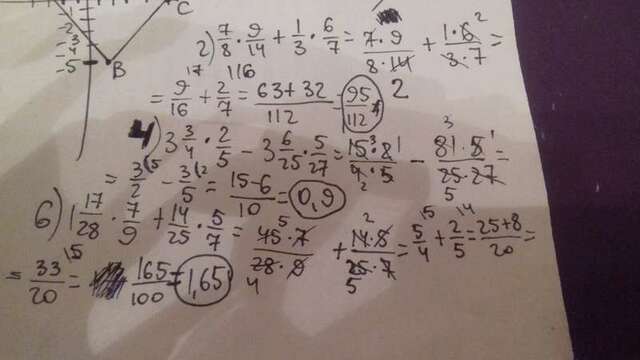 C
-1
-2
-3
-4
-5
B
2) 7/8 · 9/14 + 1/3 · 6/7 = 7·9/8·14 + 1·6²/3·7 =
= 9/16 + 2/7 = 63+32/112 = 95/112 2
4) 3 3/4 · 2/5 - 3 6/25 · 5/27 = 15³·2¹/4·5 2 - 81³·5¹/25·27 5 =
= 3/2 - 3/5 = 15-6/10 = 0,9
6) 1 17/28 · 7/9 + 14/25 · 5/7 = 45⁵·7/28·9 4 + 14²·5/25·7 5 = 5/4 + 2/5 = 25+8/20 =
= 33/20 = 165/100 = 1,65